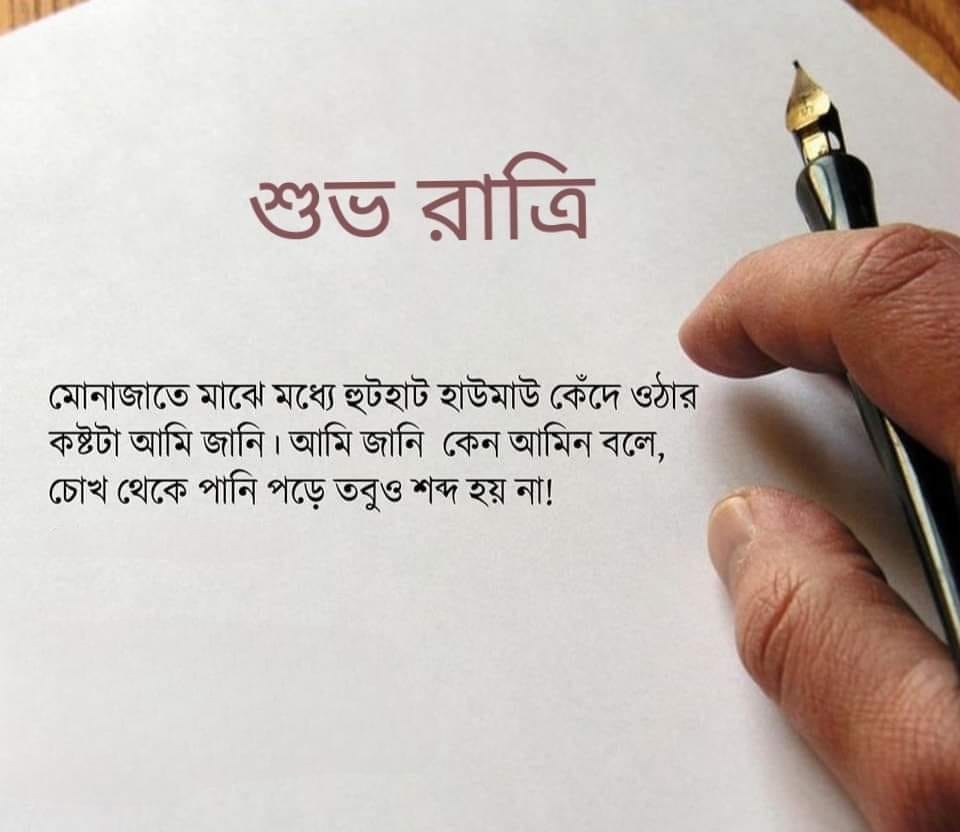 শুভ রাত্রি
মোনাজাতে মাঝে মধ্যে হুটহাট হাউমাউ কেঁদে ওঠার
কষ্টটা আমি জানি। আমি জানি কেন আমিন বলে,
চোখ থেকে পানি পড়ে তবুও শব্দ হয় না!